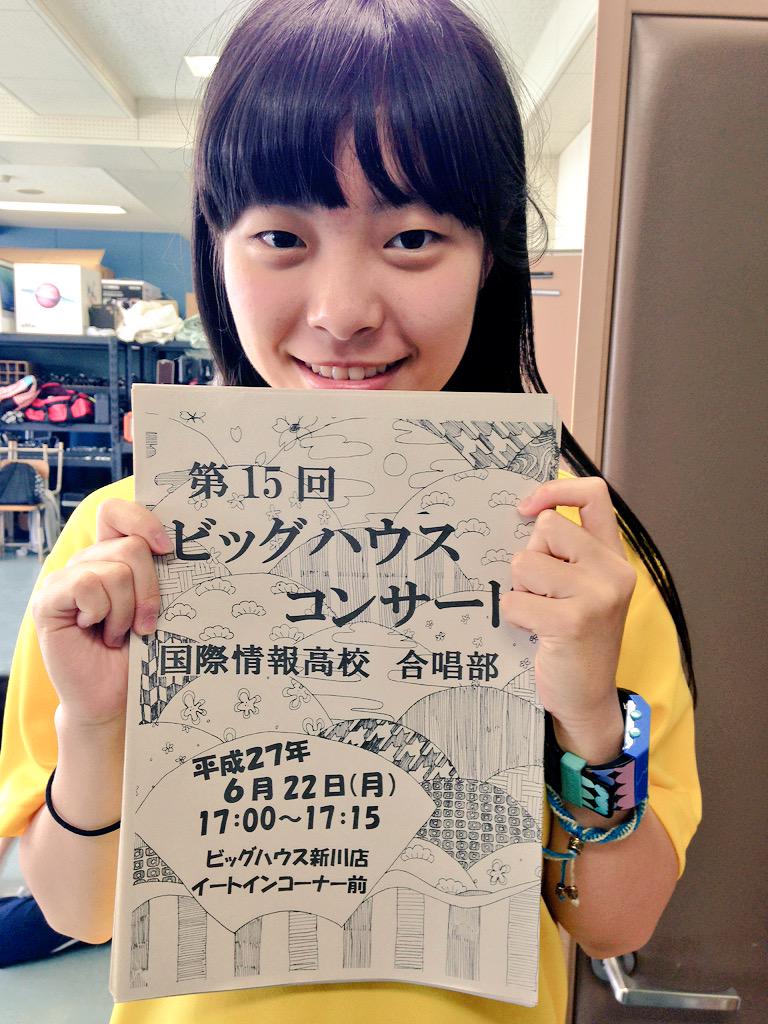 第15回
ビッグハウス
コンサート
国際情報高校 合唱部
平成27年
6月22日(月)
17:00～17:15
ビッグハウス新川店
イートインコーナー前